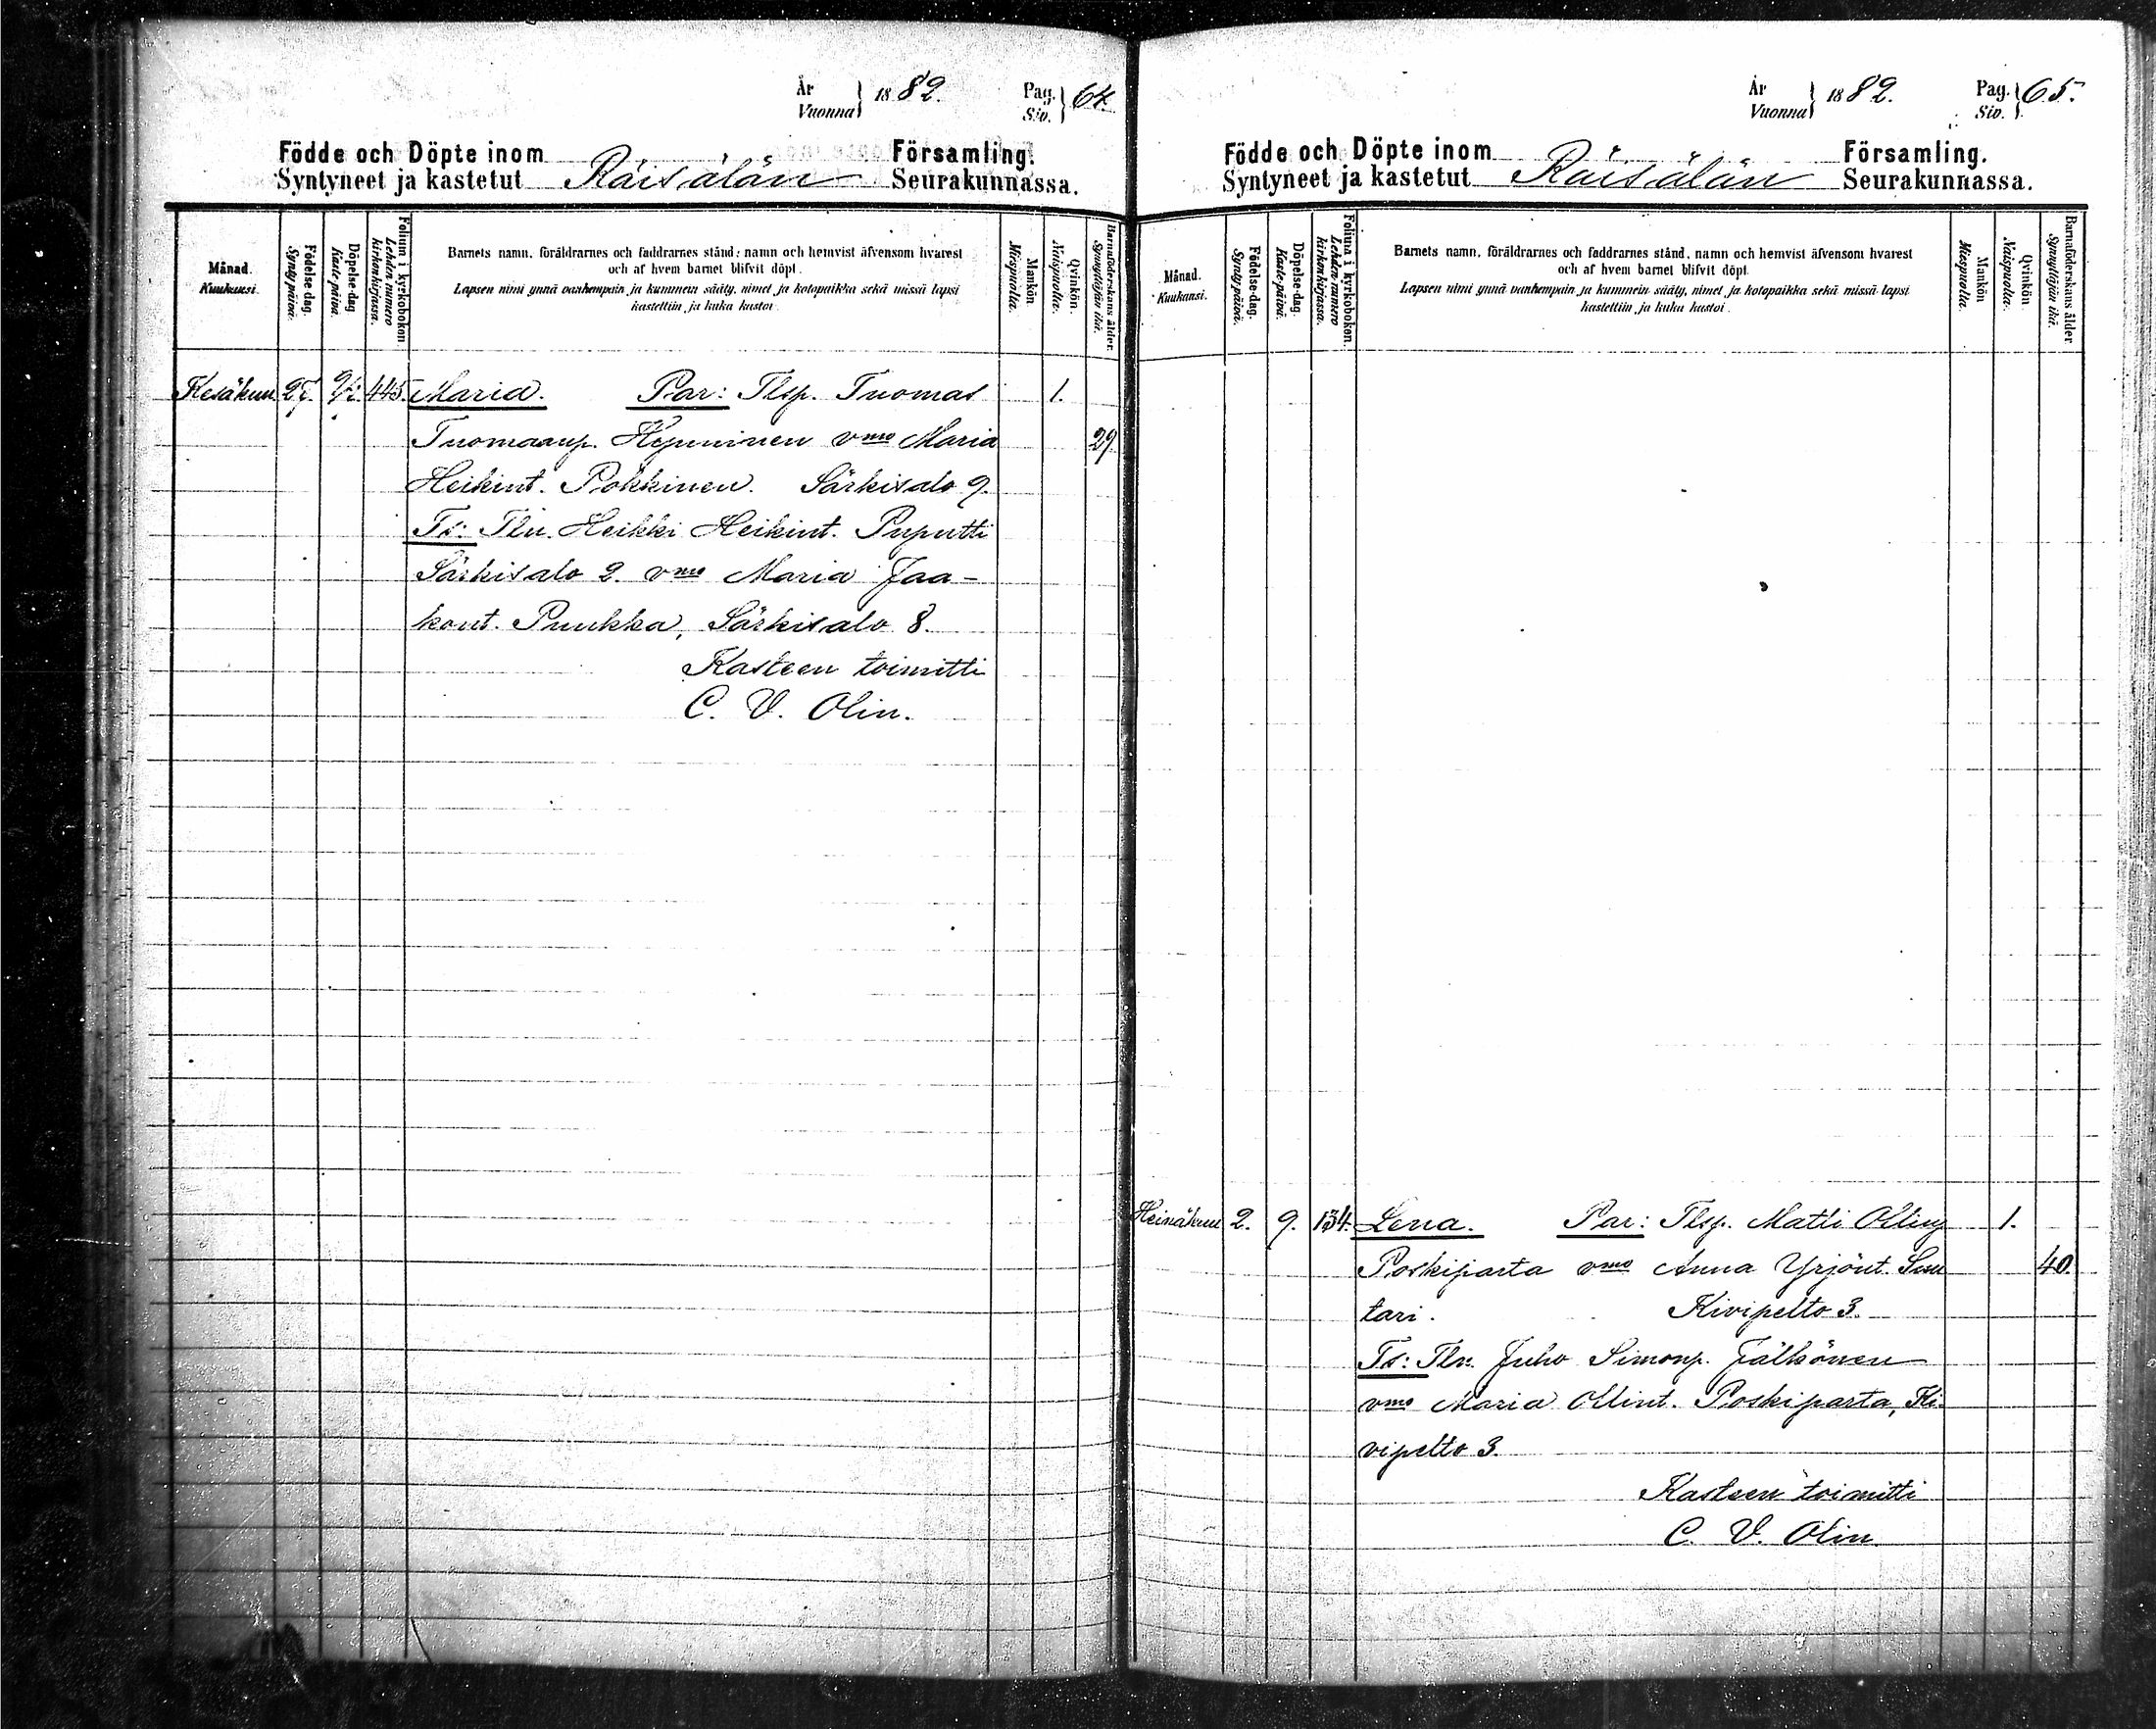 År
Vuonna } 1882.
Pag.
Siv. } 64.
Födde och Döpte inom Församling.
Syntyneet ja kastetut Räisälän Seurakunnassa.
Månad.
Kuukausi.
Födelse-dag.
Synty-päivä.
Döpelse-dag
Kaste-päivä.
Folium i kyrkoboken.
Lehden numero kirkonkirjassa.
Barnets namn, föräldrarnes och faddrarnes stånd, namn och hemvist äfvensom hvarest
och af hvem barnet blifvit döpt.
Lapsen nimi ynnä vanhempain ja kummein sääty, nimet ja kotopaikka sekä missä lapsi
kastettiin ja kuka kastoi.
Mankön
Miespuolia.
Qvinkön.
Naispuolia.
Barnaföderskans ålder.
Synnyttäjän ikä.
Kesäkuu 27. 445. Maria. Par: Tlsp. Tuomas 1.
Tuomaanp. Hynninen vmo Maria 29.
Heikint. Pokkinen. Särkisalo 9.
Ts: Tln. Heikki Heikint. Puputti
Särkisalo 2. vmo Maria Jaa-
kont. Puukka, Särkisalo 8.
Kasteen toimitti
C. V. Olin.
År
Vuonna } 1882.
Pag.
Siv. } 65.
Födde och Döpte inom Församling.
Syntyneet ja kastetut Räisälän Seurakunnassa.
Månad.
Kuukausi.
Födelse-dag.
Synty-päivä.
Döpelse-dag.
Kaste-päivä.
Folium i kyrkoboken.
Lehden numero kirkonkirjassa.
Barnets namn, föräldrarnes och faddrarnes stånd, namn och hemvist äfvensom hvarest
och af hvem barnet blifvit döpt.
Lapsen nimi ynnä vanhempain ja kummein sääty, nimet ja kotopaikka sekä missä lapsi
kastettiin ja kuka kastoi.
Mankön
Miespuolia.
Qvinkön.
Naispuolia.
Barnaföderskans ålder
Synnyttäjän ikä.
Heinäkuu 2. 9. 134. Lena. Par: Tlsp. Matti Ollinp 1.
Poskiparta vmo Anna Yrjönt. Sun 40.
tari. Kivipelto 3.
Ts: Tln. Juho Simonp. Jälkönen
vmo Maria Ollint. Poskiparta, Ki-
vipelto 3.
Kasteen toimitti
C. V. Olin